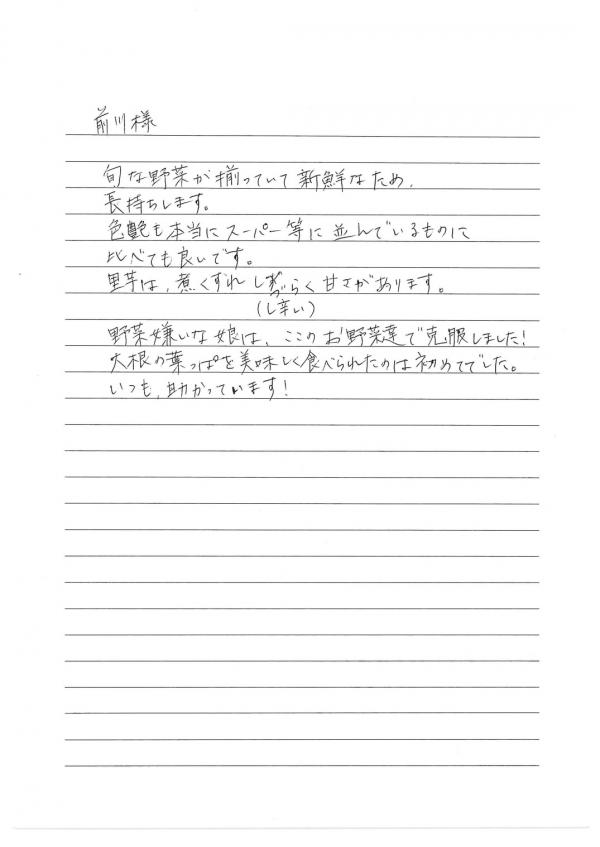 前川様
旬な野菜が揃っていて新鮮なため、
長持ちします。
色艶も本当にスーパー等に並んでいるものに
比べても良いです。
里芋は、煮くずれしづらく甘さがあります。
(し辛い)
野菜嫌いな娘は、ここのお野菜達で克服しました!
大根の葉っぱを美味しく食べられたのは初めてでした。
いつも、助かっています!